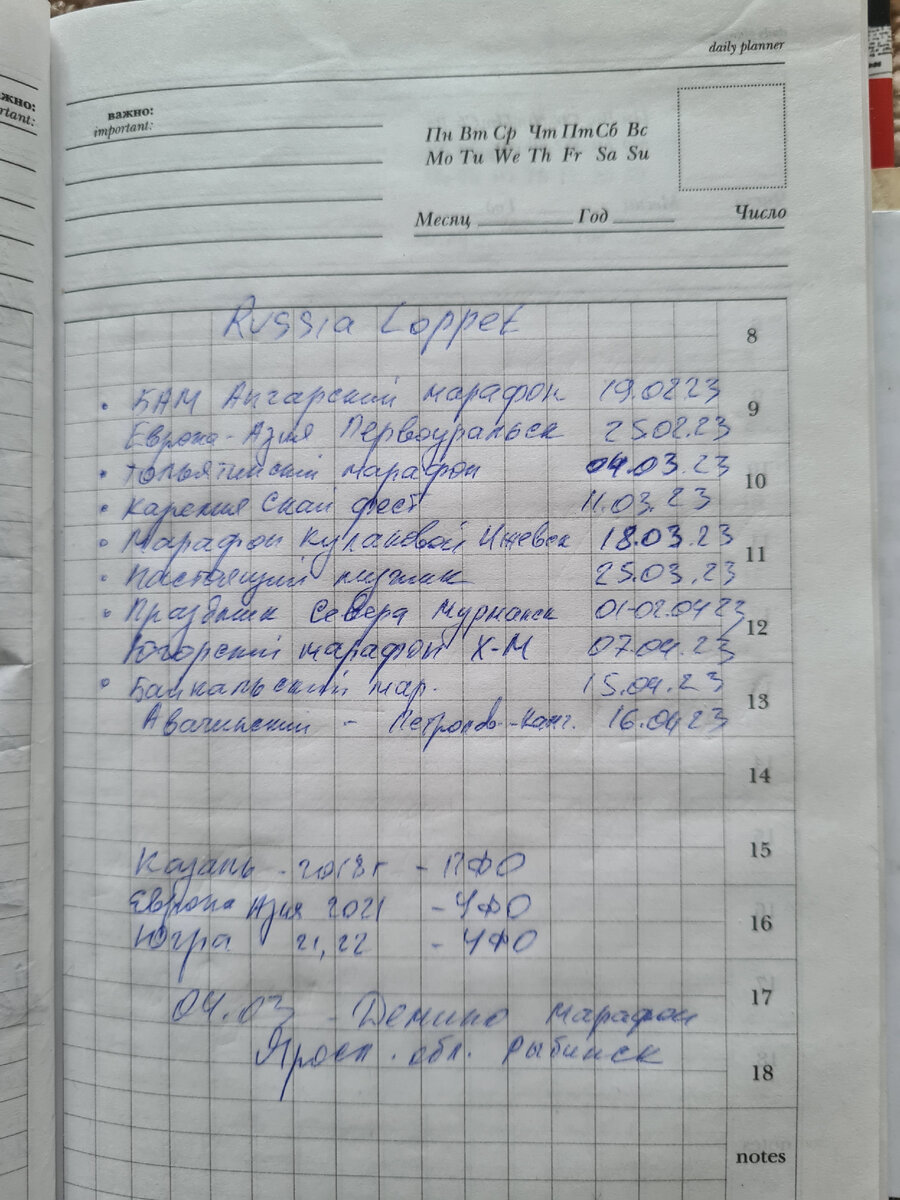 daily planner
важно:
important:
жно:
rtant:
Пн Вт Ср Чт Пт Сб Вс
Mo Tu We Th Fr Sa Su
Месяц Год Число
Russia Loppet
8
• БАМ Ангарский марафон 19.02 23
9
Европа-Азия Первоуральск 25.02.23
• Тольятинский марафон 04.03.23
10
• Карелия Скай фест 11.03.23
• Марафон Кулаковой Ижевск 18.03.23
11
• Настоящий лыжник 25.03.23
• Праздник Севера Мурманск 01-02.04 23
12
Югорский марафон Х-М 07.04.23
• Байкальский мар. 15.04.23
13
Авачинский - Петропав-Камч. 16.04 23
14
15
Казань - 2018г - ПФО
Европа Азия 2021 - УФО
16
Югра 21, 22 - УФО
17
04.03 - Демино марафон
Яросл. обл. Рыбинск
18
notes